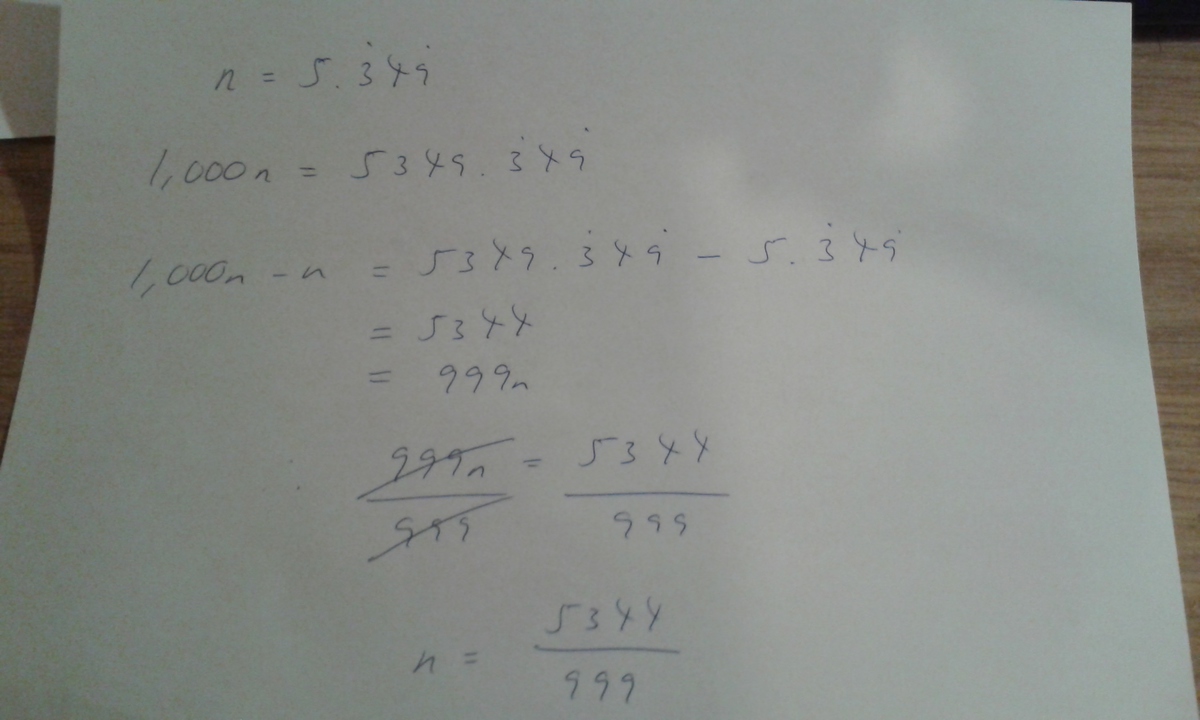 n = 5.3̇49̇
1,000n = 5349.3̇49̇
1,000n - n = 5349.3̇49̇ - 5.3̇49̇
= 5344
= 999n
999n = 5344
999 999
n = 5344
999